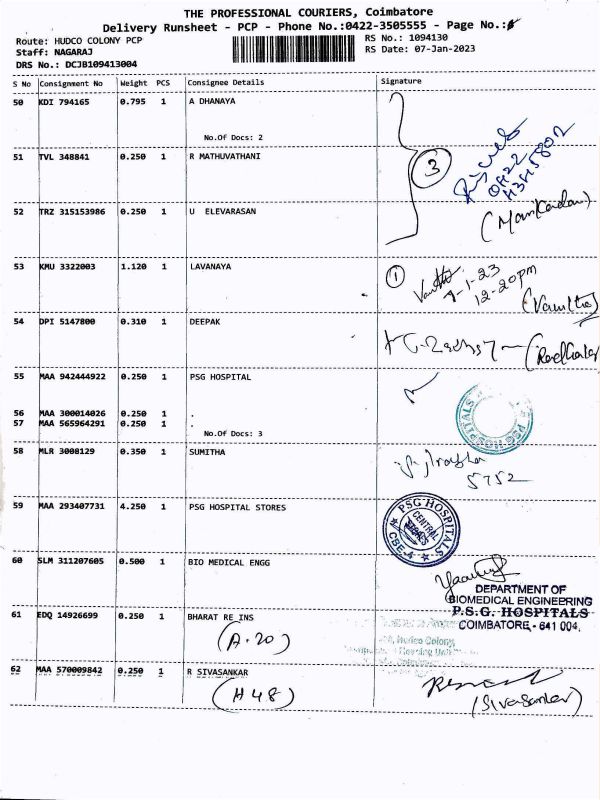 THE PROFESSIONAL COURIERS, Coimbatore
Delivery Runsheet - PCP - Phone No.:0422-3505555 - Page No.:
Route: HUDCO COLONY PCP
RS No.: 1094130
Staff: NAGARAJ
RS Date: 07-Jan-2023
DRS No.: DCJB109413004
S No Consignment No Weight PCS Consignee Details Signature
50 KDI 794165 0.795 1 A DHANAYA
No.Of Docs: 2
51 TVL 348841 0.250 1 R MATHUVATHANI
3
52 TRZ 315153986 0.250 1 U ELEVARASAN
(Manikandan)
53 KMU 3322003 1.120 1 LAVANAYA
1
7-1-23
12-20pm
(Vanitha)
54 DPI 5147800 0.310 1 DEEPAK
55 MAA 942444922 0.250 1 PSG HOSPITAL
PSG HOSPITALS
56 MAA 300014026 0.250 1 .
57 MAA 565964291 0.250 1 .
No.Of Docs: 3
58 MLR 3008129 0.350 1 SUMITHA
5752
59 MAA 293407731 4.250 1 PSG HOSPITAL STORES
PSG HOSPITALS
CENTRAL
STORES
CBE-4
60 SLM 311207605 0.500 1 BIO MEDICAL ENGG
DEPARTMENT OF
BIOMEDICAL ENGINEERING
P.S.G. HOSPITALS
COIMBATORE - 641 004.
61 EDQ 14926699 0.250 1 BHARAT RE INS
(A.20)
Hudco Colony,
62 MAA 570009842 0.250 1 R SIVASANKAR
(H48)
(Sivasankar)